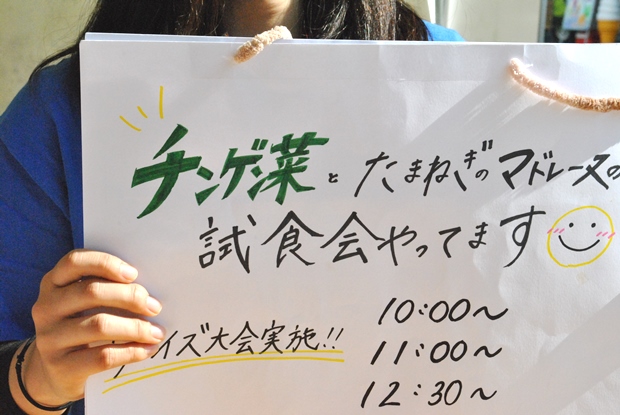 チンゲン菜とたまねぎのマドレーヌの
試食会やってます
クイズ大会実施!!
10:00〜
11:00〜
12:30〜